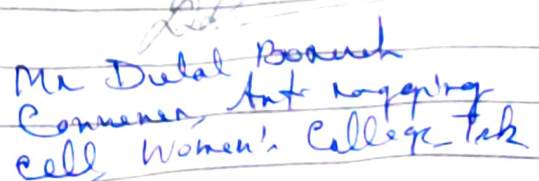 Mr Dulal Boruah
Convener, Anti ragging
cell, Women's College, Tsk